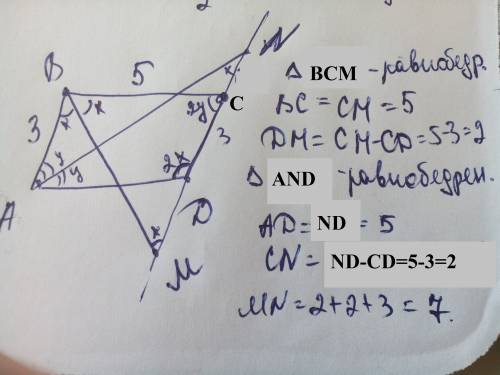 B 5 N
x
x x 2y C
3 3
y y 2x
A D
x
M
Δ BCM - равнобедр.
BC = CM = 5
DM = CM-CD = 5-3=2
Δ AND - равнобедрен.
AD = ND = 5
CN = ND-CD=5-3=2
MN = 2+2+3 = 7.